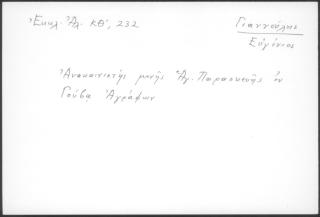 Ἐκκλ. Ἀλ. ΚΘ', 232
Γιαννούλης
Εὐγένιος
Ἀνακαινιστής μονῆς Ἁγ. Παρασκευῆς ἐν
Γούβα Ἀγράφων